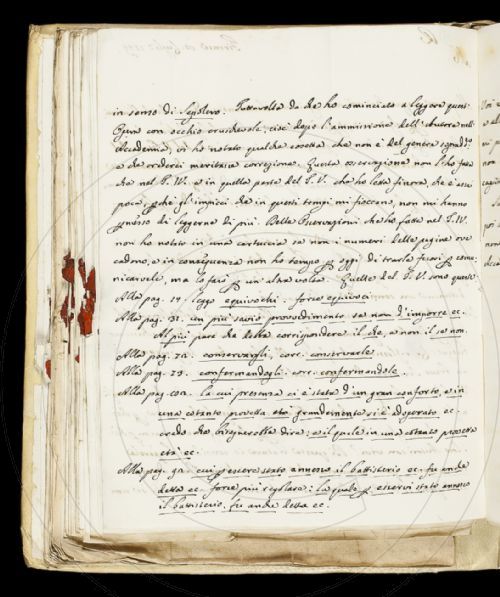 in senso di Sepolcro. Tuttavolta da che ho cominciato a leggere quest'
Opera con occhio cruschevole, cioè dopo l'ammissione dell'Autore nell'
Accademia, vi ho notato qualche cosetta che non è del genere
e che crederei meritasse correzione. Questa osservazione non l'ho fatta
che nel T. IV. e in quella parte del T. V. che ho letta finora, che è assai
poca, perché gl'impicci che in questi tempi mi fioccano, non mi hanno
permesso di leggerne di più. Delle Osservazioni che ho fatte nel T. IV.
non ho notato in una cartuccia se non i numeri delle pagine ove
cadono, e in conseguenza non ho tempo per oggi di trarle fuori e comu-
nicarvele, ma lo farò per un'altra volta. Quelle del T. V. sono queste
Alla pag. 14. leggo equivochi. forse equivoci
Alla pag. 31. un più savio provvedimento se non d'imporre ec.
Al più pare che debba corrispondere il che, e non il se non.
Alla pag. 72. conservargli. corr. conservarle
Alla pag. 73. confermandogli. corr. confermandole.
Alla pag. 102. la cui presenza ci è stata d'un gran conforto, e in
una cotanto provetta età grandemente si è adoperato ec.
credo che bisognerebbe dire: e il quale in una cotanto provetta
età ec.
Alla pag. 92. cui per essere stato annesso il battisterio ec. fu anche
detta ec. forse più regolare: la quale per esservi stato annesso
il battisterio, fu anche detta ec.